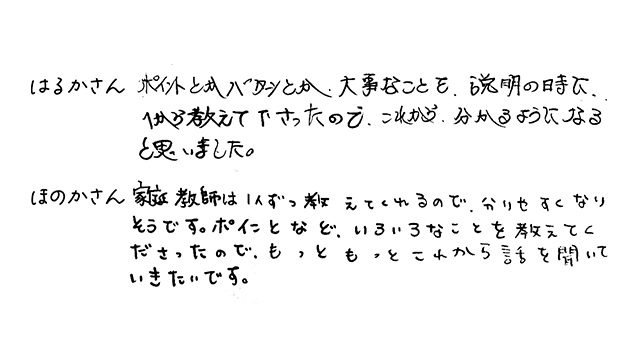 はるかさん ポイントとかパターンとか、大事なことを、説明の時に、
1から教えて下さったので、これから、分かるようになる
と思いました。
ほのかさん 家庭教師は1人ずつ教えてくれるので、分りやすくなり
そうです。ポイントなど、いろいろなことを教えてく
ださったので、もっともっとこれから話を聞いて
いきたいです。